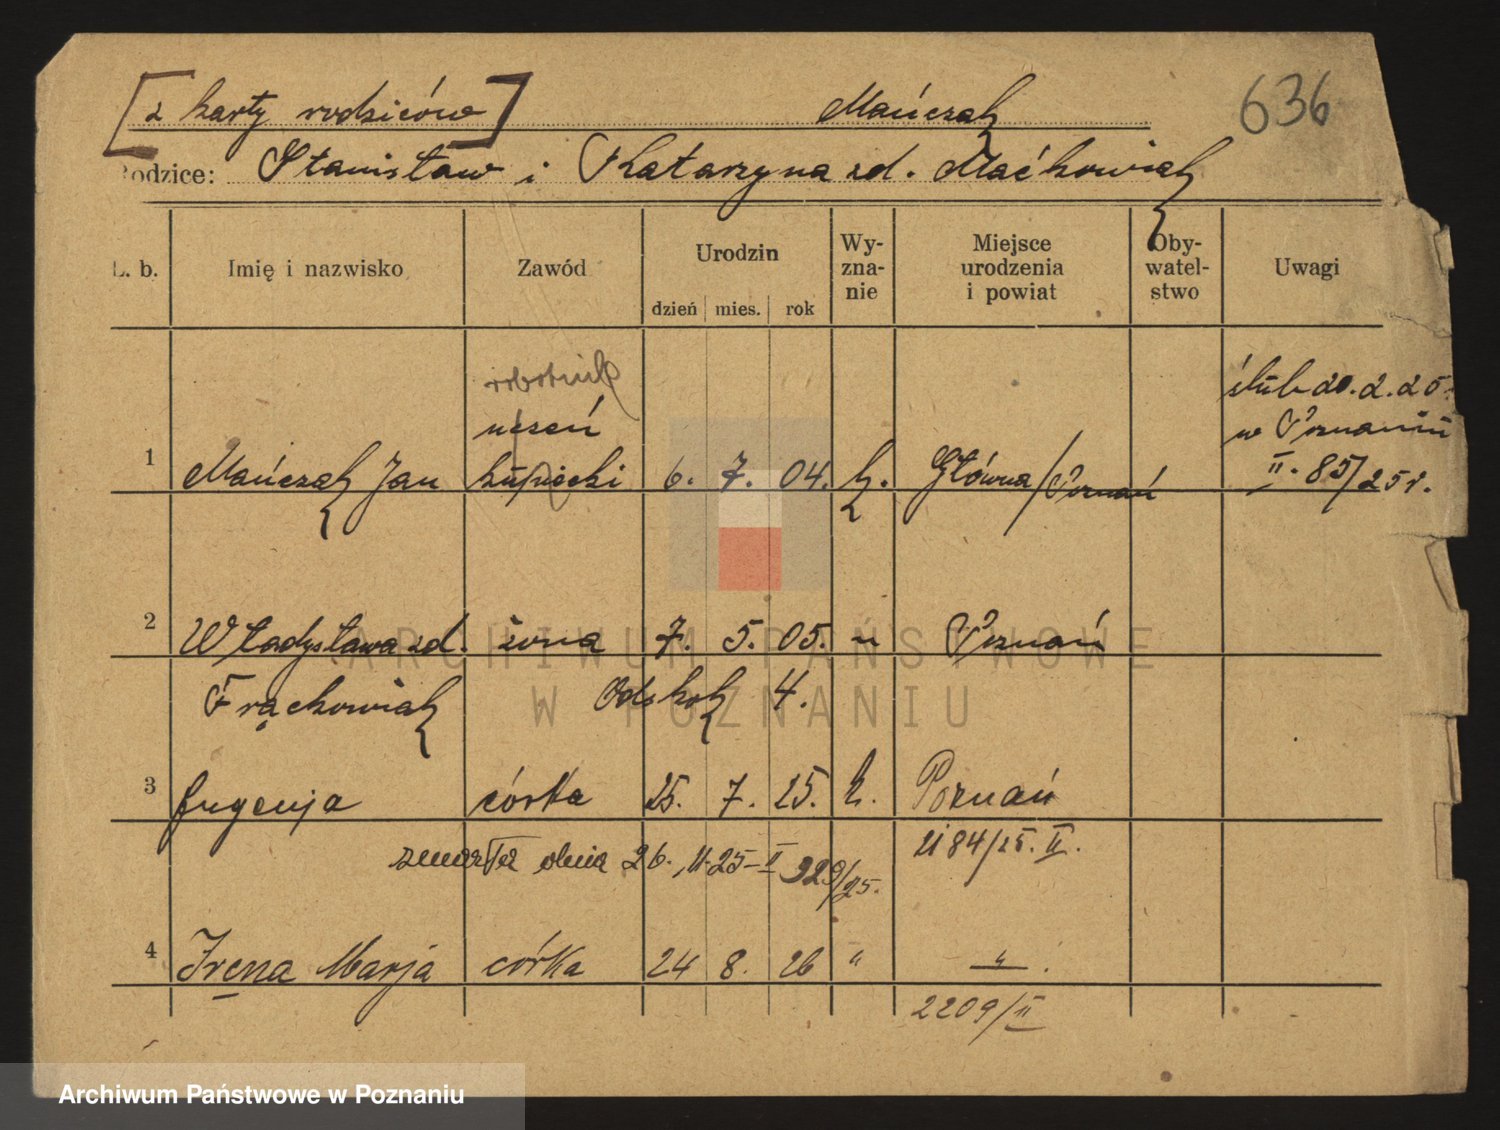 [z karty rodziców] Mańczak 636
Rodzice: Stanisław i Katarzyna zd. Maćkowiak
L. b. Imię i nazwisko Zawód Urodzin dzień mies. rok Wy-zna-nie Miejsce urodzenia i powiat Oby-watel-stwo Uwagi
robotnik
uczeń
1 Mańczak Jan kupiecki 6. 7. 04. k. Główna/Poznań
ślub 20.2.25.
w Poznaniu
II. 85/25 r.
2 Władysława zd. żona 7. 5. 05. " Poznań
Frąckowiak Odskok 4.
3 Eugenja córka 25. 7. 25. k. Poznań
zmarła dnia 26.11.25 - II 929/25.
2184/25. II.
4 Irena Marja córka 24 8. 26 " "
2209/II
ARCHIWUM PAŃSTWOWE
W POZNANIU
Archiwum Państwowe w Poznaniu